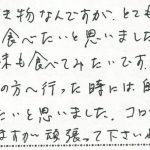 き物なんですが、とても
食べたいと思いました
味も食べてみたいです.
の方へ行った時には
たいと思いました. コロ
ますが頑張って下さい